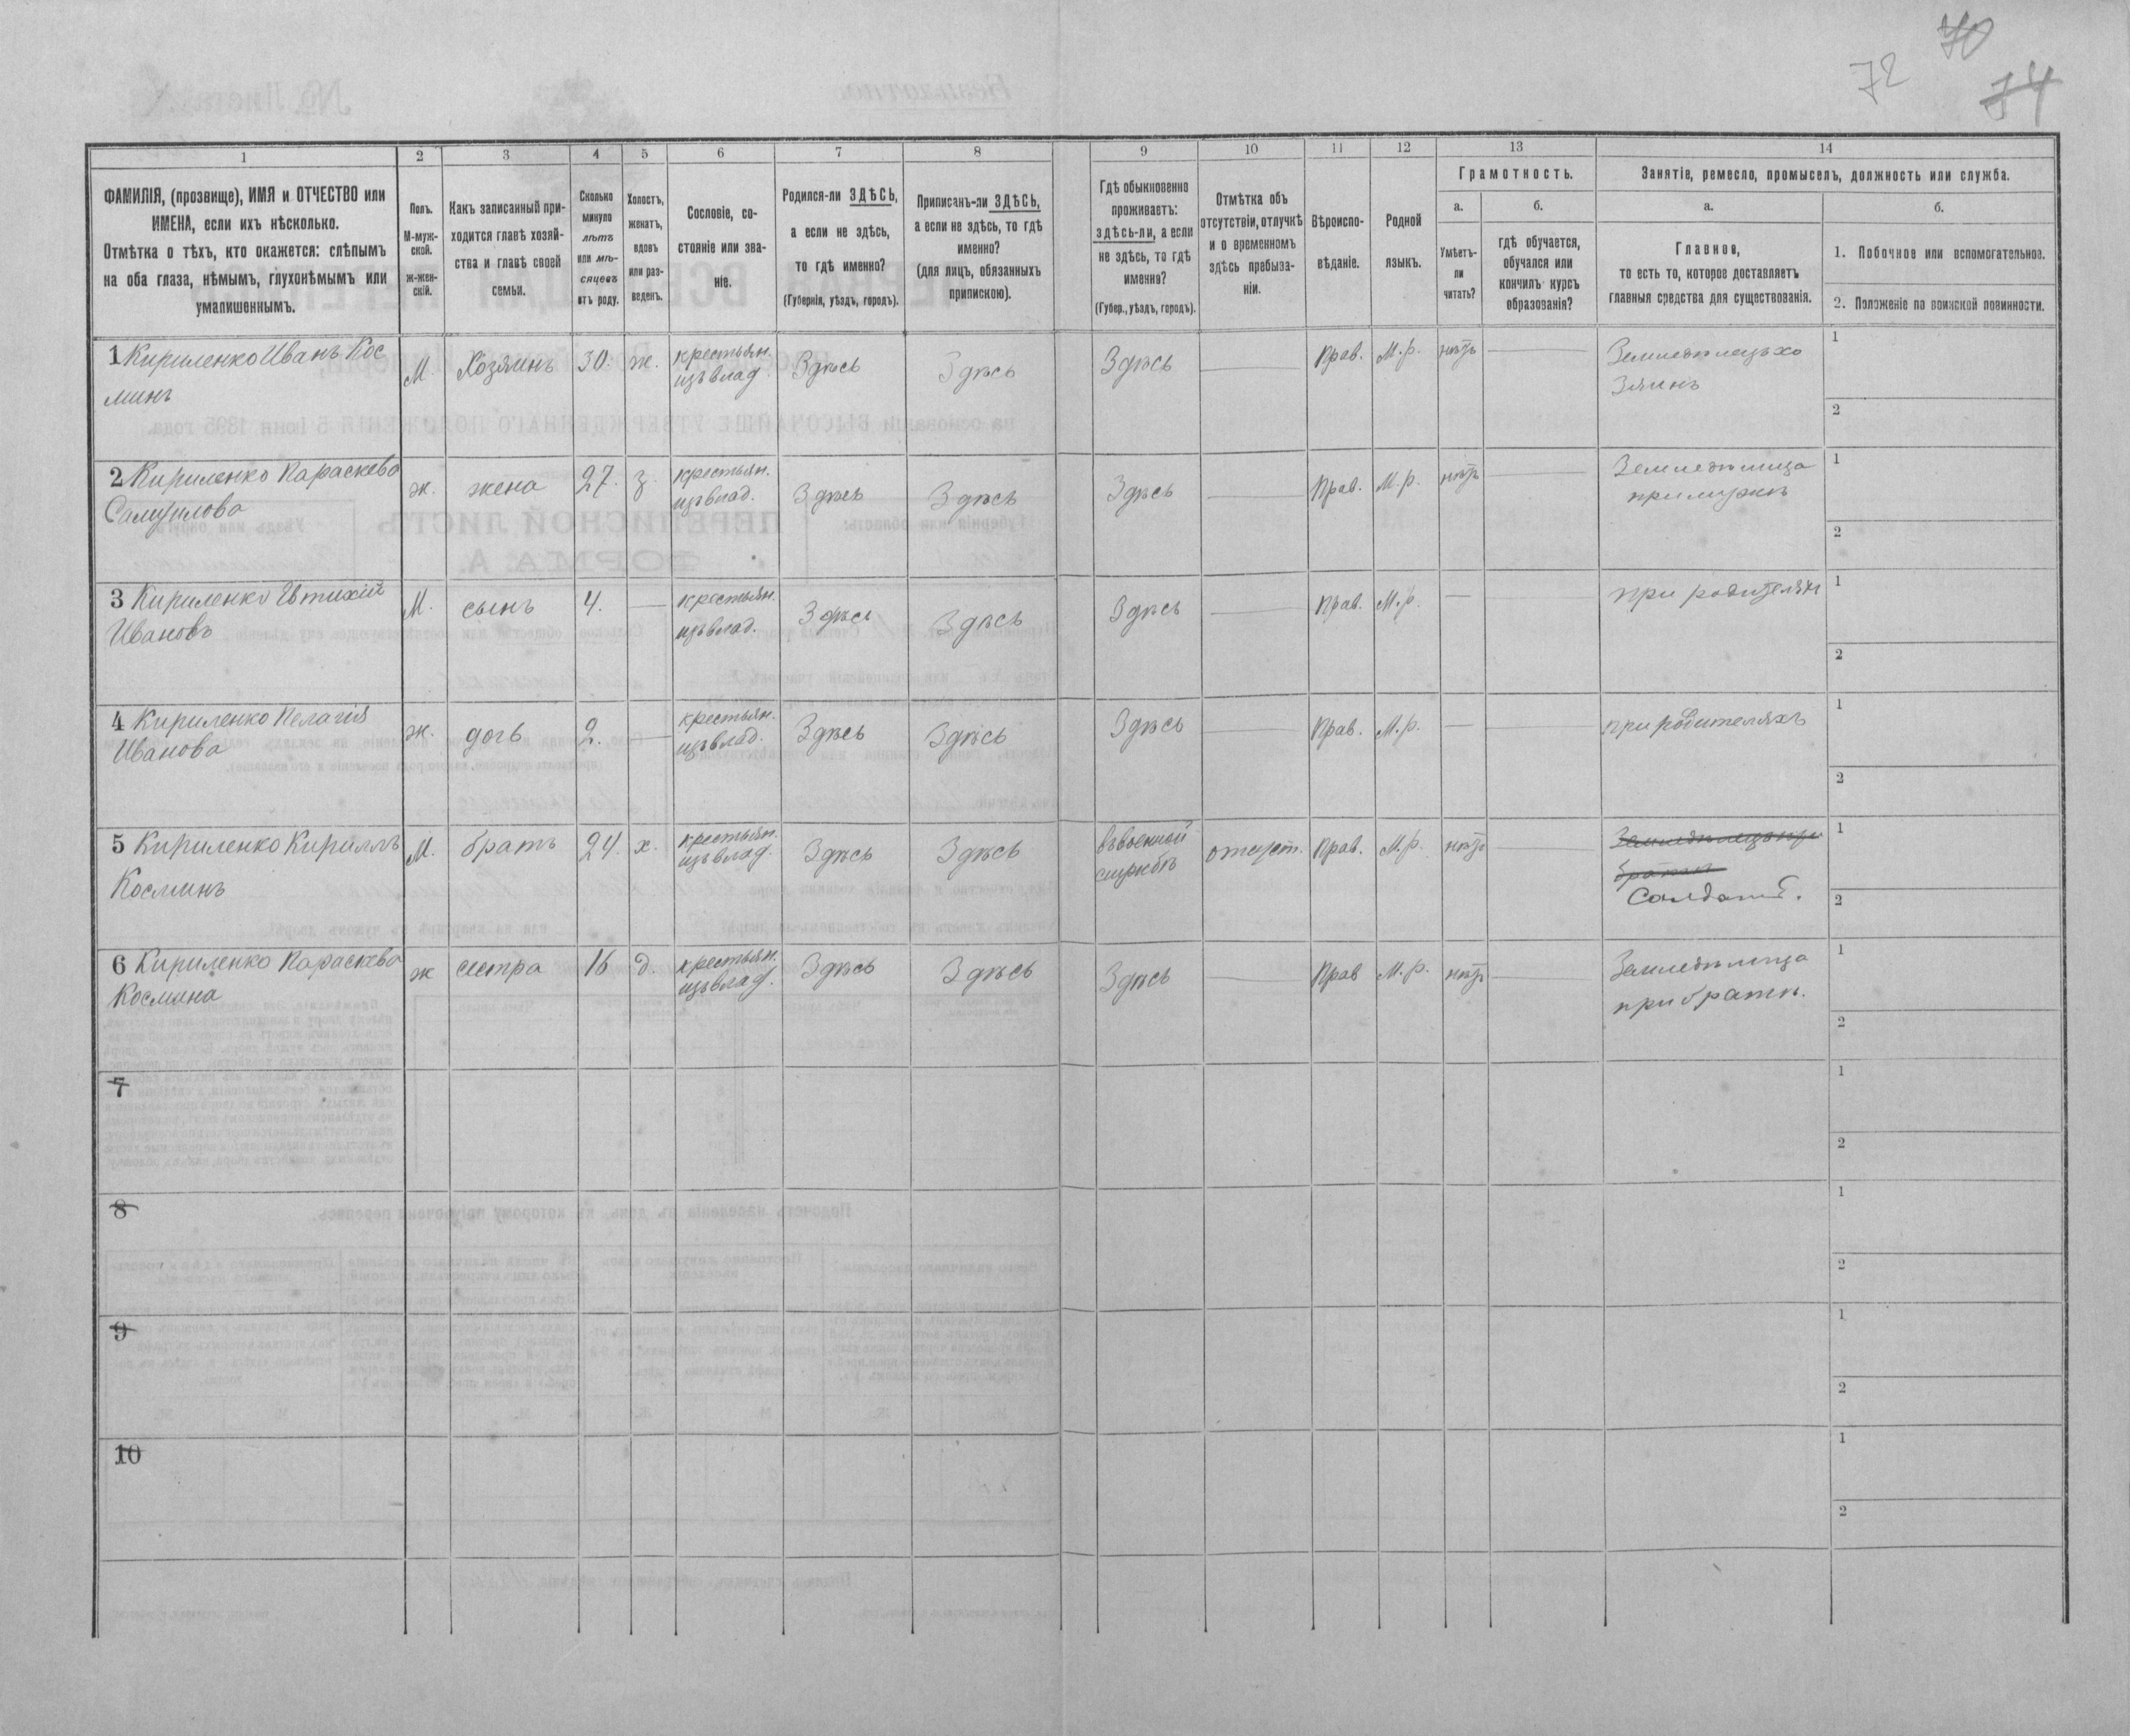 70
72
74
1
2
3
4
5
6
7
8
9
10
11
12
13
14
ФАМИЛІЯ, (прозвище), ИМЯ и ОТЧЕСТВО или
ИМЕНА, если ихъ нѣсколько.
Отмѣтка о тѣхъ, кто окажется: слѣпымъ
на оба глаза, нѣмымъ, глухонѣмымъ или
умалишеннымъ.
Полъ.
М-муж-
ской.
ж-жен-
скій.
Какъ записанный при-
ходится главѣ хозяй-
ства и главѣ своей
семьи.
Сколько
минуло
лѣтъ
или мѣ-
сяцевъ
отъ роду.
Холостъ,
женатъ,
вдовъ
или раз-
веденъ.
Сословіе, со-
стояніе или зва-
ніе.
Родился-ли ЗДѢСЬ,
а если не здѣсь,
то гдѣ именно?
(Губернія, уѣздъ, городъ).
Приписанъ-ли ЗДѢСЬ,
а если не здѣсь, то гдѣ
именно?
(для лицъ, обязанныхъ
припискою).
Гдѣ обыкновенно
проживаетъ:
здѣсь-ли, а если
не здѣсь, то гдѣ
именно?
(Губер., уѣздъ, городъ).
Отмѣтка объ
отсутствіи, отлучкѣ
и о временномъ
здѣсь пребыва-
ніи.
Вѣроиспо-
вѣданіе.
Родной
языкъ.
Грамотность.
а.
Умѣетъ-
ли
читать?
б.
гдѣ обучается,
обучался или
кончилъ курсъ
образованія?
Занятіе, ремесло, промыселъ, должность или служба.
а.
Главное,
то есть то, которое доставляетъ
главныя средства для существованія.
б.
1. Побочное или вспомогательное.
2. Положеніе по воинской повинности.
1 Кириленко Иванъ Кос
минъ
М
Хозяинъ
30.
ж.
крестьян.
изъ влад.
Здѣсь
Здѣсь
Здѣсь
Прав.
М.р.
нѣтъ
Земледѣлецъ хо
зяинъ
1
2
2 Кириленко Параскева
Самуилова
ж.
жена
27.
з.
крестьян.
изъ влад.
Здѣсь
Здѣсь
Здѣсь
Прав.
М.р.
нѣтъ
Земледѣлица
при мужѣ
1
2
3 Кириленко Евтихій
Ивановъ
М.
сынъ
4.
крестьян.
изъ влад.
Здѣсь
Здѣсь
Здѣсь
Прав.
М.р.
при родителяхъ
1
2
4 Кириленко Пелагія
Иванова
ж.
дочь
2.
крестьян.
изъ влад.
Здѣсь
Здѣсь
Здѣсь
Прав.
М.р.
при родителяхъ
1
2
5 Кириленко Кириллъ
Косминъ
М.
братъ
24.
х.
крестьян.
изъ влад.
Здѣсь
Здѣсь
въ военной
службѣ
отсутст.
Прав.
М.р.
нѣтъ
Земледѣлецъ при
братѣ
Солдатъ.
1
2
6 Кириленко Параскева
Космина
ж
сестра
16
д.
крестьян.
изъ влад.
Здѣсь
Здѣсь
Здѣсь
Прав
М.р.
нѣтъ
Земледѣлица
при братѣ.
1
2
7
1
2
8
1
2
9
1
2
10
1
2